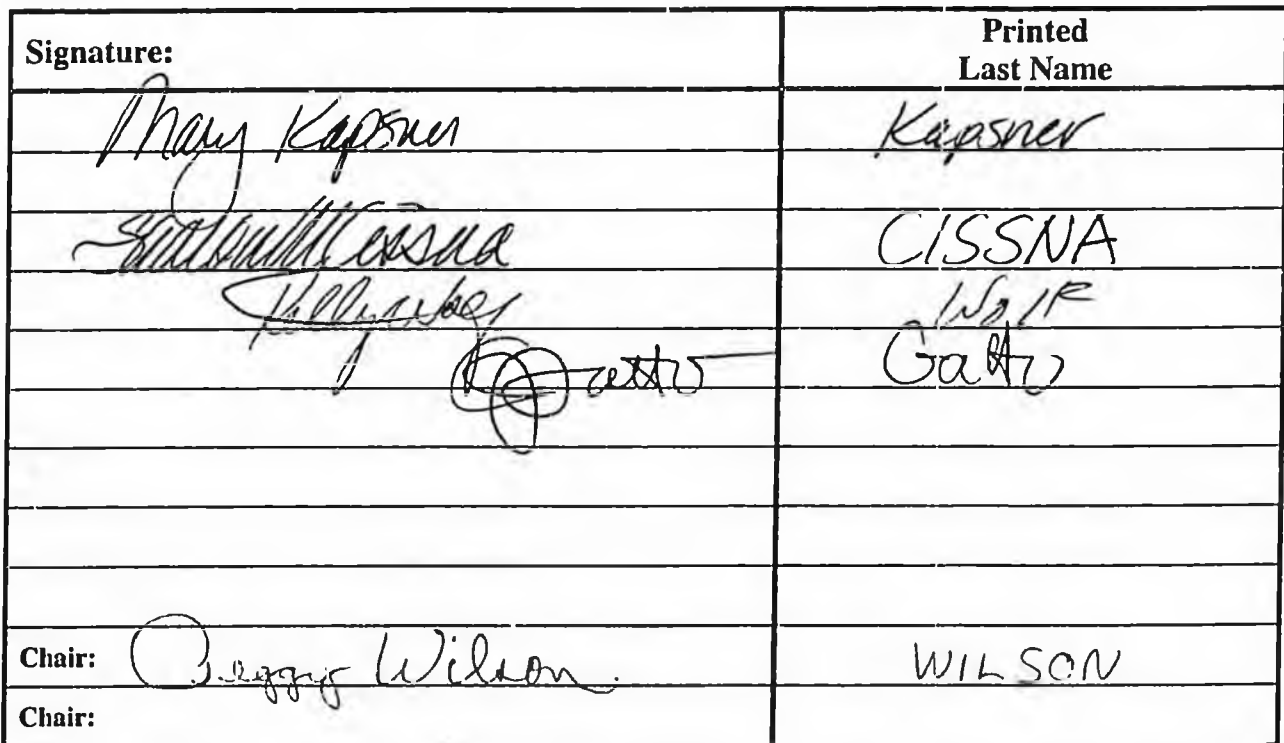 Signature: Printed Last Name
Mary Kapsner Kapsner
Cissna CISSNA
Kelly Wolf Wolf
Gatto Gatto
Chair: Peggy Wilson WILSON
Chair: